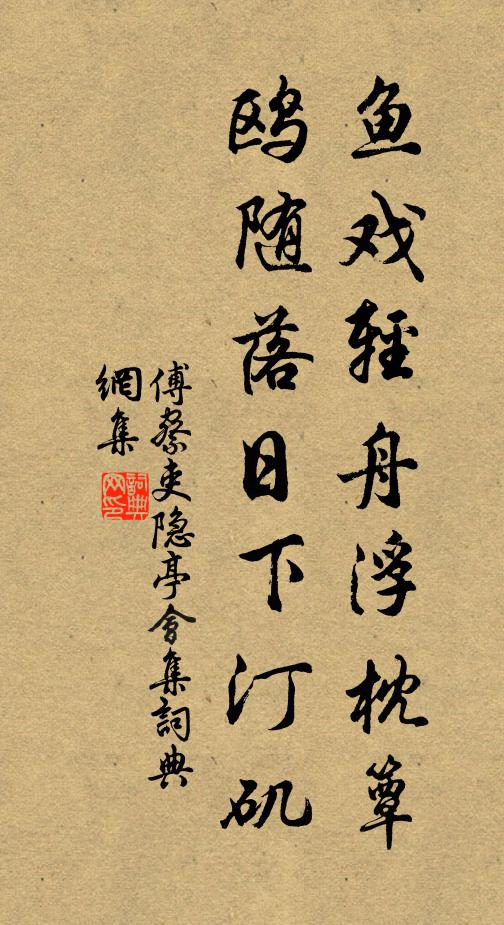 鱼戏轻舟浮枕簟
鸥随落日下汀矶
傅察吏隐亭会集词典
网集
词典网印